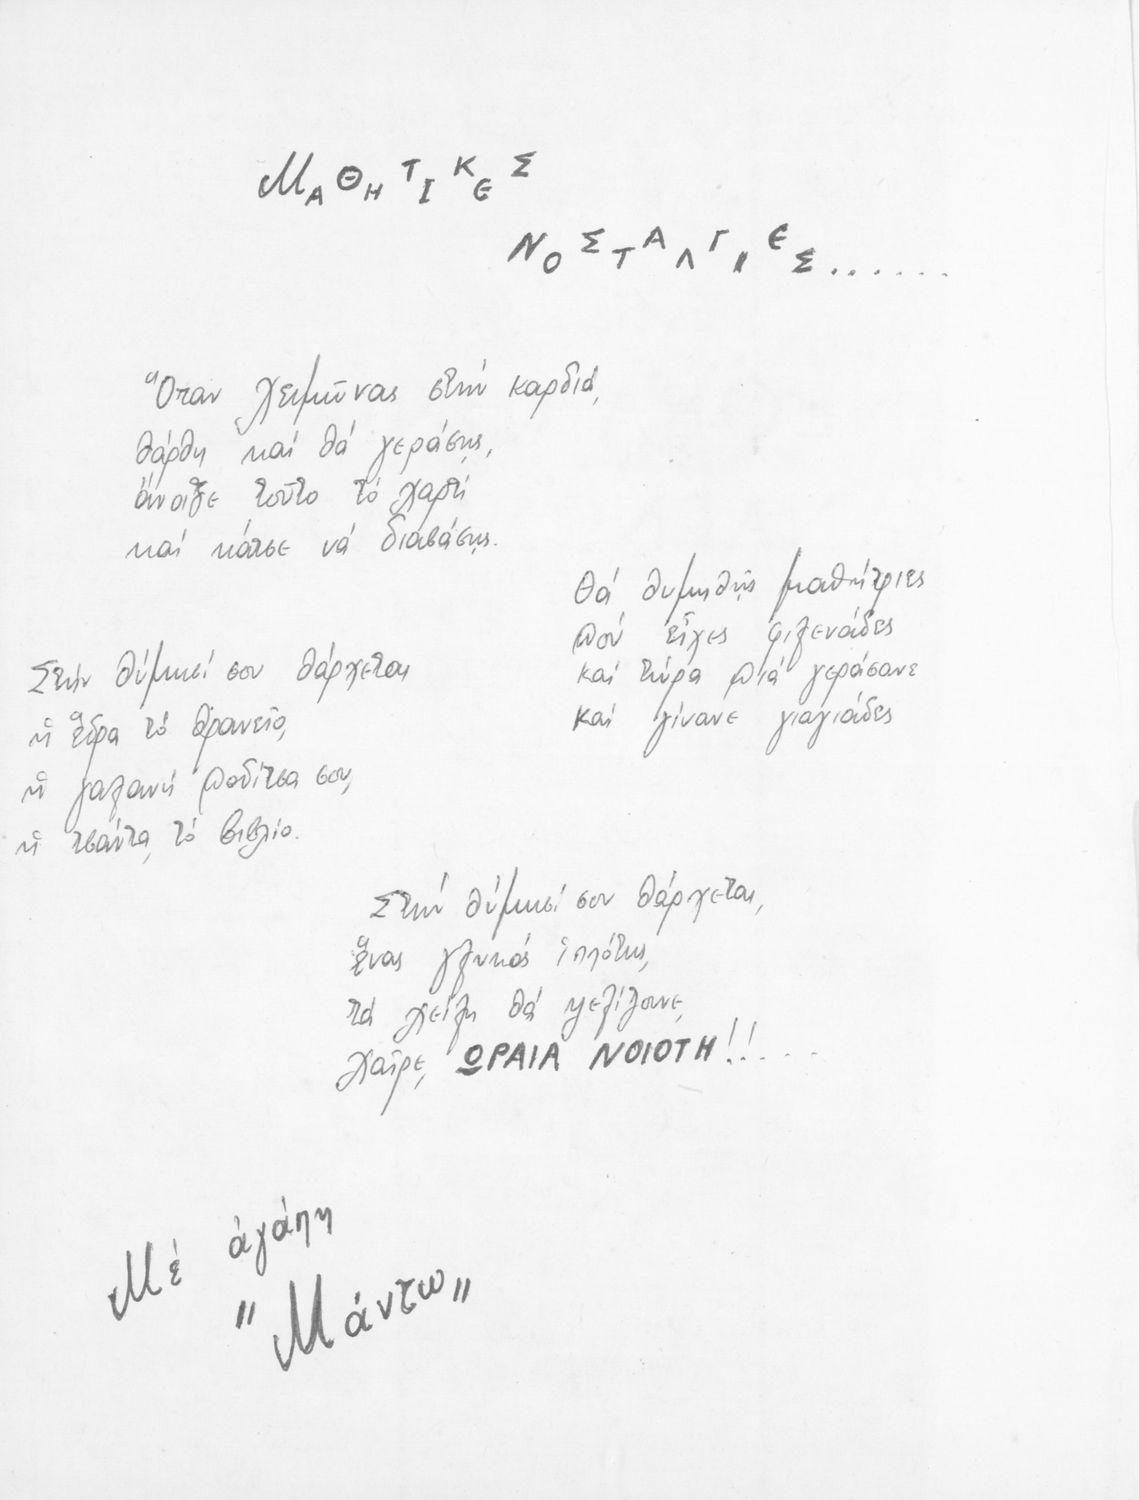 ΜΑΘΗΤΙΚΕΣ
ΝΟΣΤΑΛΓΙΕΣ......
Ὅταν χειμῶνας στήν καρδιά,
θάρθη καί θά γεράσης,
ἄνοιξε τοῦτο τό χαρτί
καί κάτσε νά διαβάσης.
Θά θυμηθῆς μαθήτριες
πού εἶχες φιλενάδες
καί τώρα πιά γεράσανε
καί γίνανε γιαγιάδες
Στήν θύμησί σου θάρχεται
ἡ ἕδρα τό θρανεῖο,
ἡ γαλανή ποδίτσα σου,
ἡ τσάντα, τό βιβλίο.
Στήν θύμησί σου θάρχεται,
ἕνας γλυκός ἱππότης,
τά χείλη θά ψελίζουνε,
χαῖρε, ΩΡΑΙΑ ΝΟΙΟΤΗ!!....
Μέ ἀγάπη
"Μάντω"